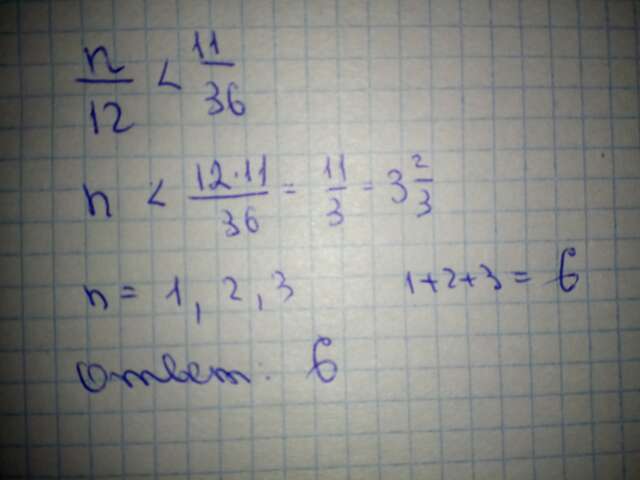 n/12 < 11/36
n < 12·11/36 = 11/3 = 3 2/3
n = 1, 2, 3 1+2+3 = 6
Ответ: 6